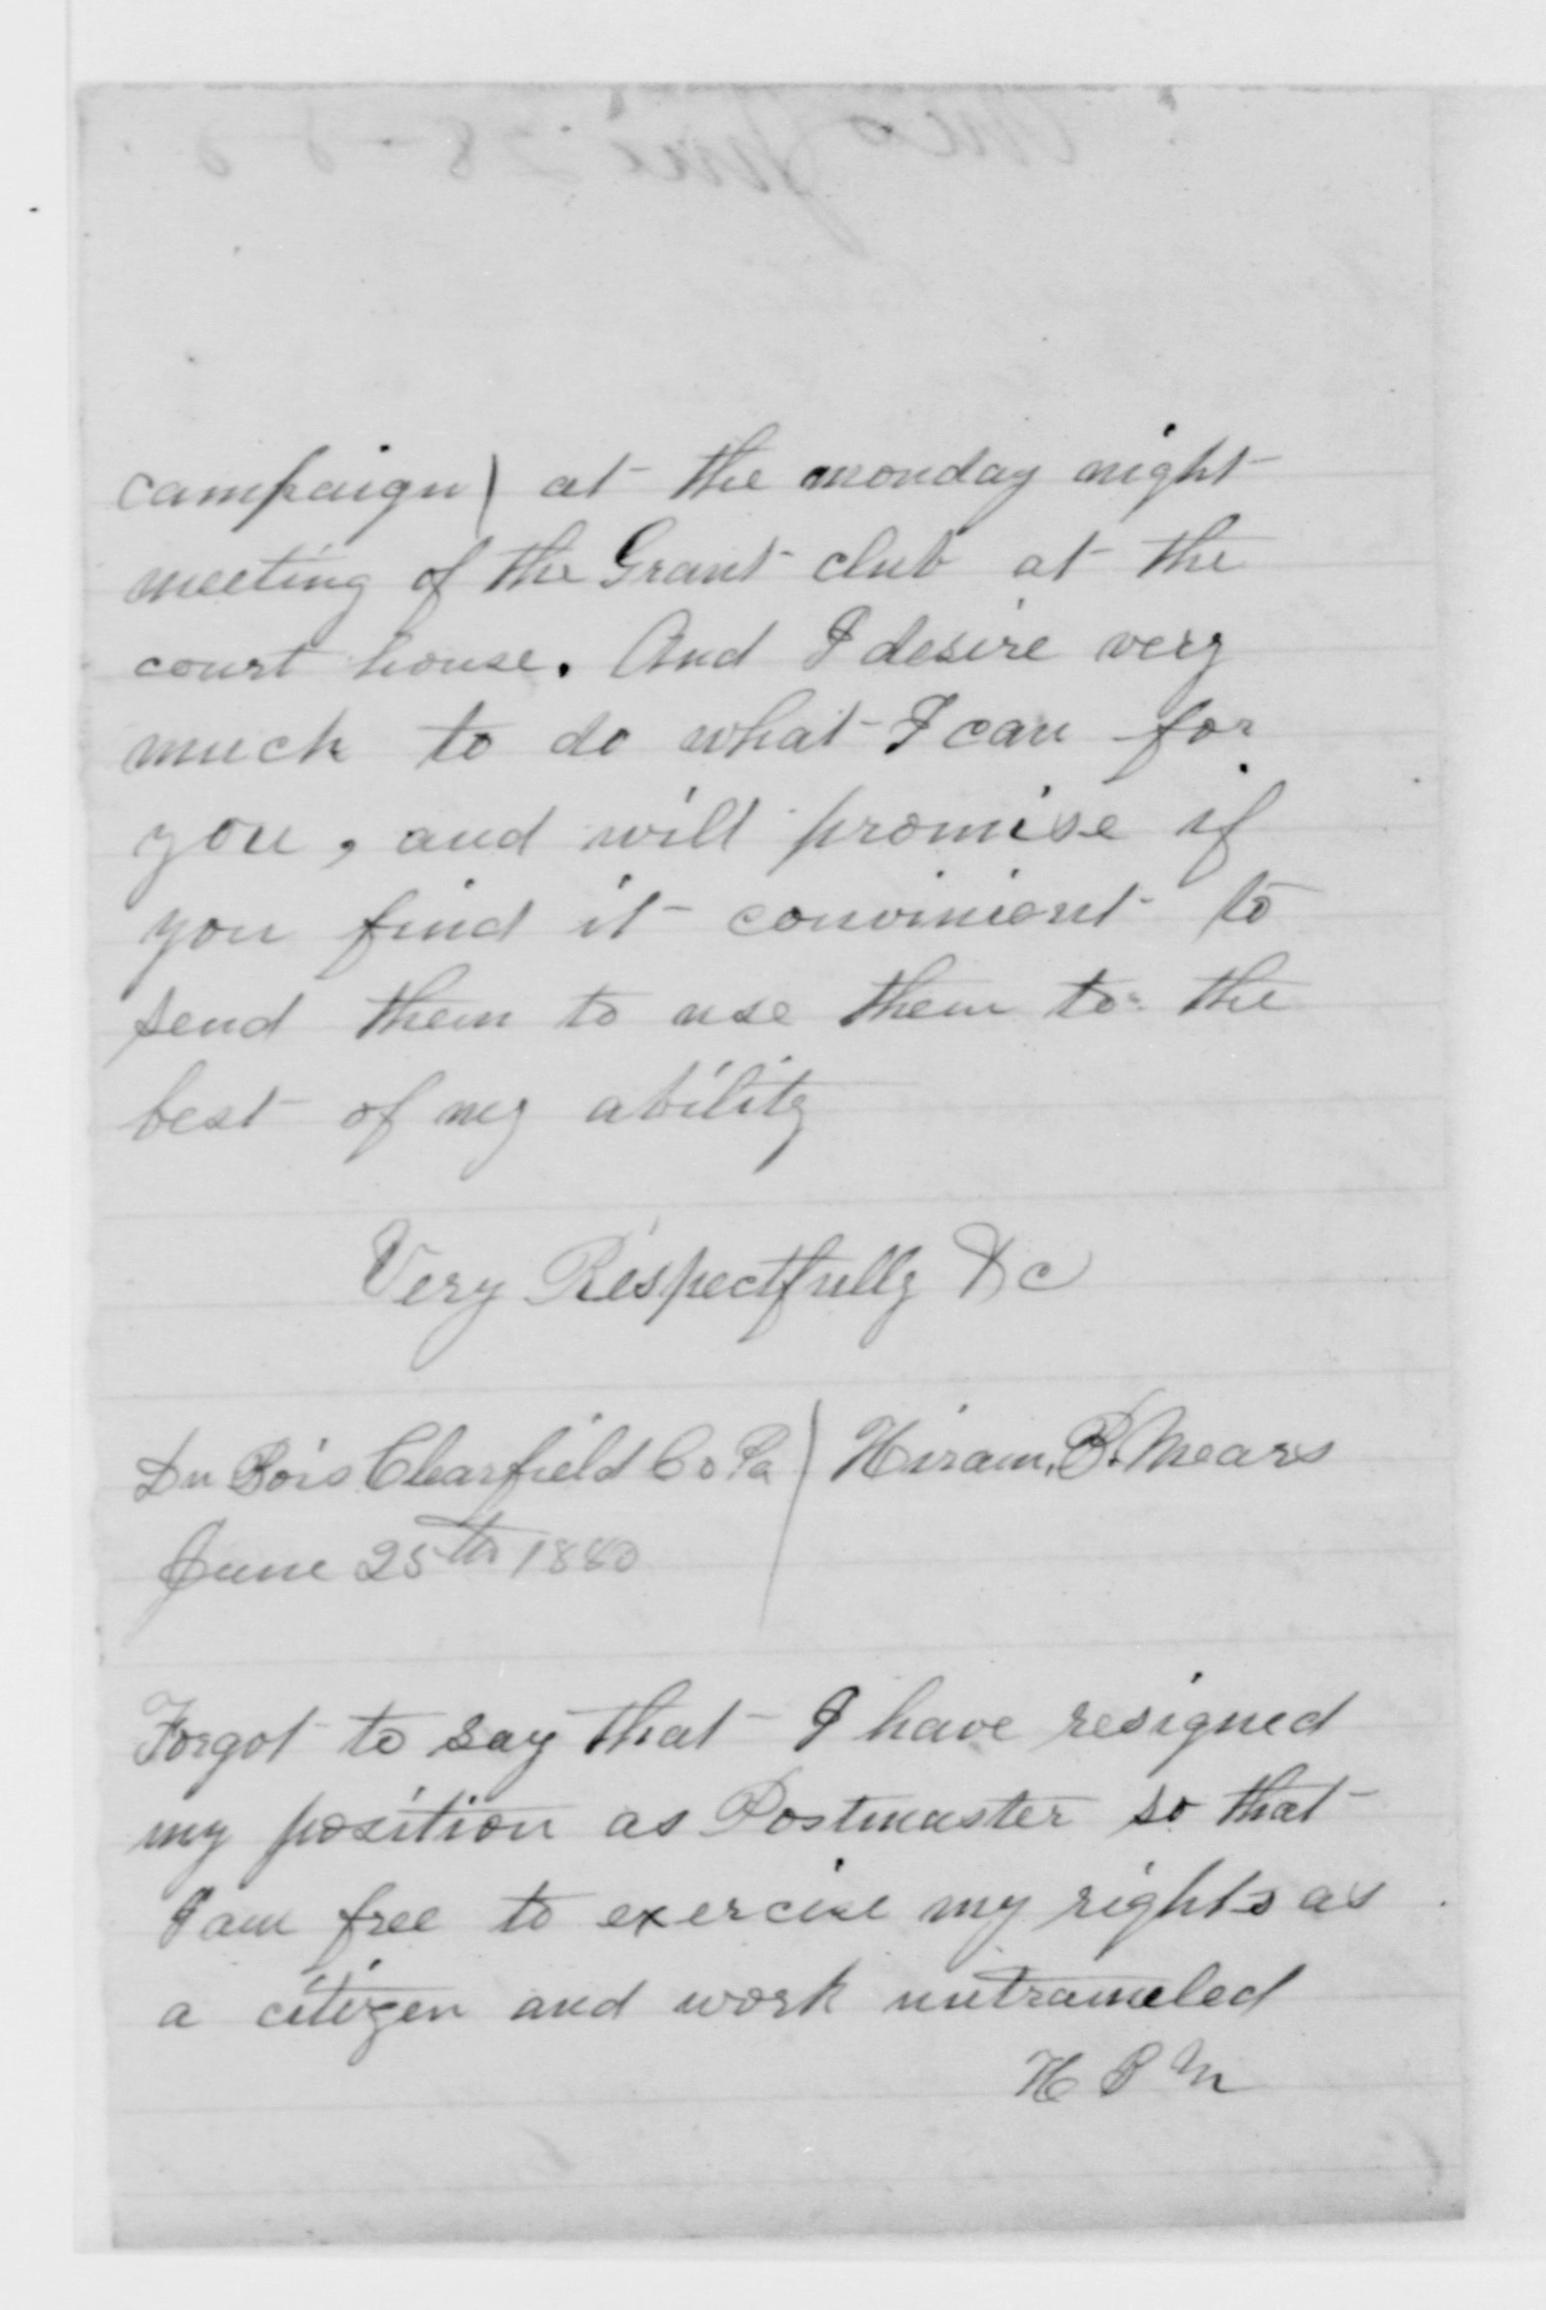 campaign) at the monday night
meeting of the Grant club at the
court house. And I desire very
much to do what I can for
you, and will promise if
you find it convinient to
send them to use them to the
best of my ability
Very Respectfully &c
Du Bois Clearfield Co Pa) Hiram, B. Mears
June 25th 1880
Forgot to say that I have resigned
my position as Postmaster so that
I am free to exercise my rights as
a citizen and work untrameled
H B M